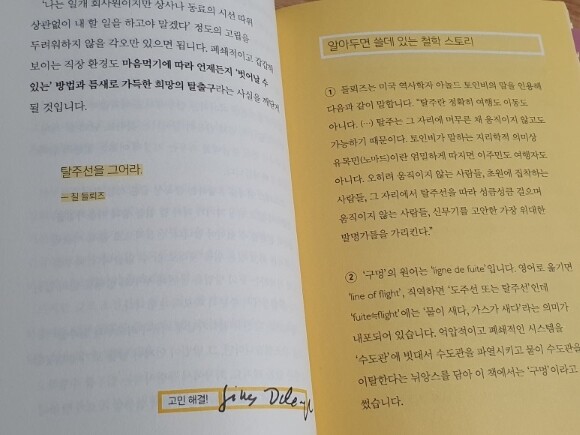 '나는 일개 회사원이지만 상사나 동료의 시선 따위
상관없이 내 할 일을 하고야 말겠다' 정도의 고립을
두려워하지 않을 각오만 있으면 됩니다. 폐쇄적이고 갑갑해
보이는 직장 환경도 마음먹기에 따라 언제든지 '벗어날 수
있는' 방법과 틈새로 가득한 희망의 탈출구라는 사실을 깨닫게
될 것입니다.
탈주선을 그어라.
— 질 들뢰즈
고민 해결!
알아두면 쓸데 있는 철학 스토리
① 들뢰즈는 미국 역사학자 아놀드 토인비의 말을 인용해
다음과 같이 말합니다. "탈주란 정확히 여행도 이동도
아니다. (…) 탈주는 그 자리에 머무른 채 움직이지 않고도
가능하기 때문이다. 토인비가 말하는 지리학적 의미상
유목민(노마드)이란 엄밀하게 따지면 이주민도 여행자도
아니다. 오히려 움직이지 않는 사람들, 초원에 집착하는
사람들, 그 자리에서 탈주선을 따라 성큼성큼 걸으며
움직이지 않는 사람들, 신무기를 고안한 가장 위대한
발명가들을 가리킨다."
② '구멍'의 원어는 'ligne de fuite'입니다. 영어로 옮기면
'line of flight', 직역하면 '도주선 또는 탈주선'인데
'fuite=flight'에는 '물이 새다, 가스가 새다'라는 의미가
내포되어 있습니다. 억압적이고 폐쇄적인 시스템을
'수도관'에 빗대서 수도관을 파열시키고 물이 수도관을
이탈한다는 뉘앙스를 담아 이 책에서는 '구멍'이라고
썼습니다.